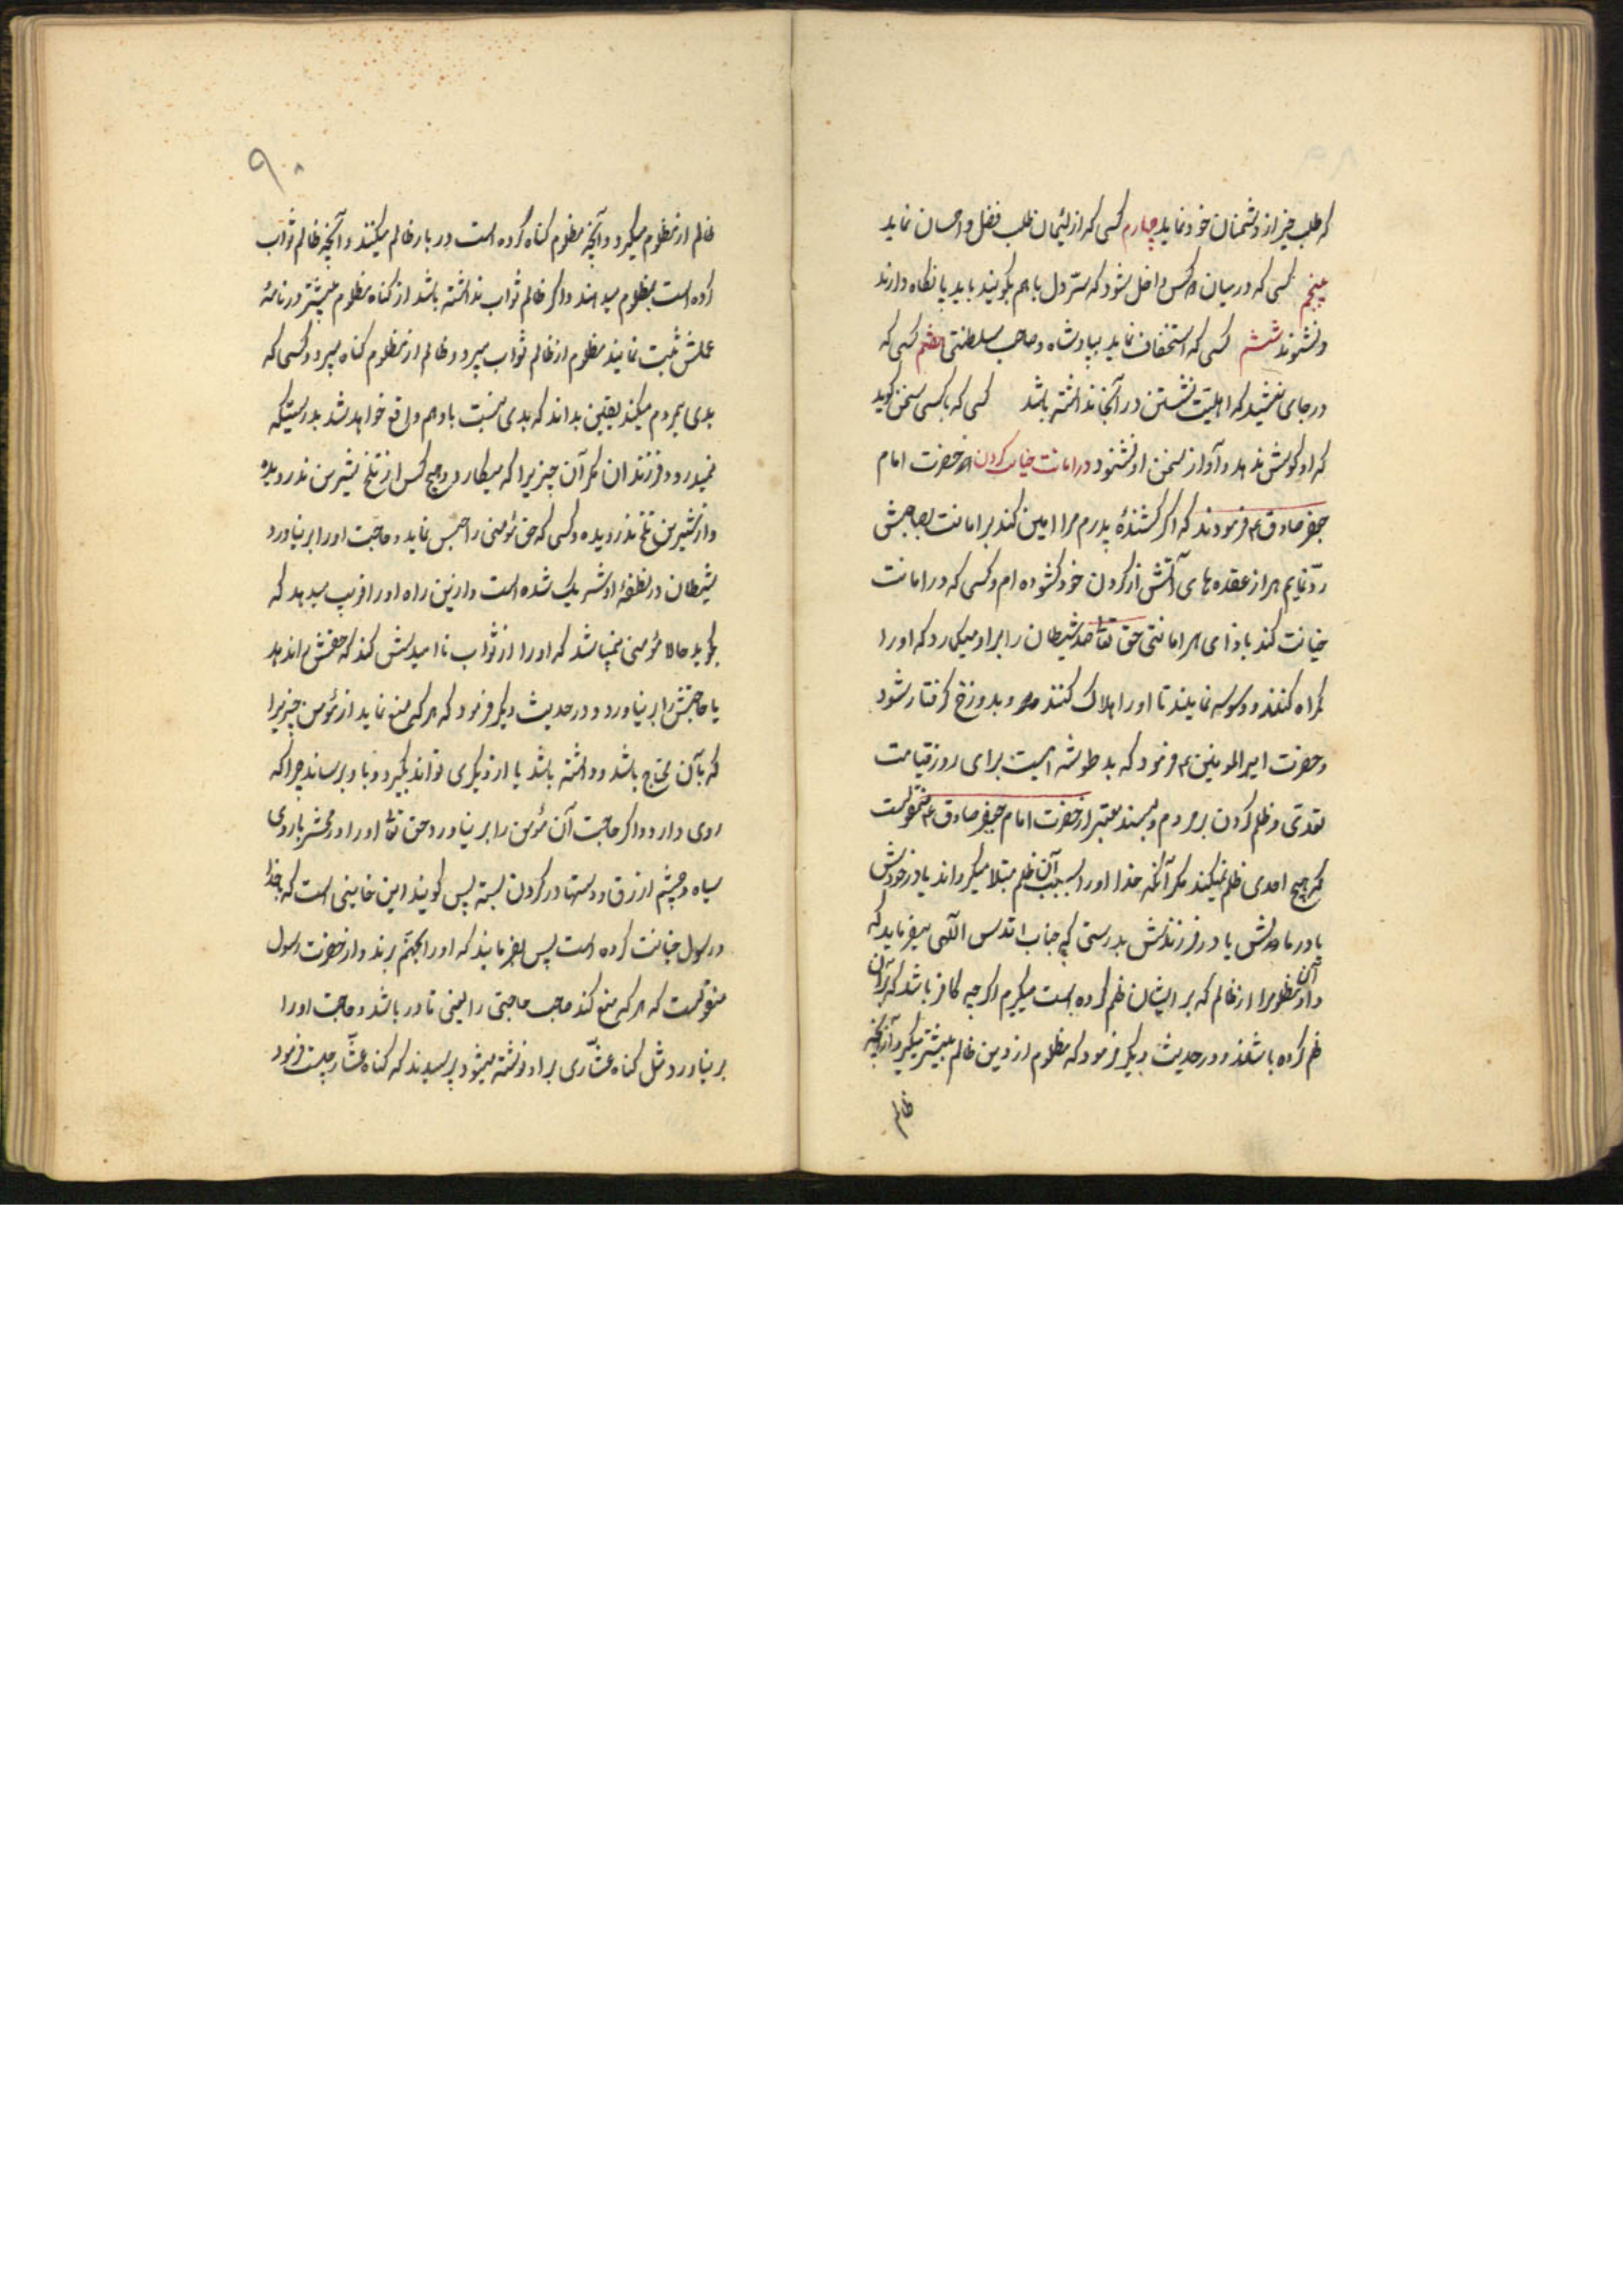 که طلب خیر از دشمنان خود نماید چهارم کسی که از لئیمان طلب فضل و احسان نماید
پنجم کسی که در میان دو کس داخل شود که سرّ دل باهم بگویند باید پا نگاه دارند
و نشنوند ششم کسی که استخفاف نماید بپادشاه و صاحب سلطنتی هفتم کسی که
در جای نشیند که اهلیت نشستن در آنجا نداشته باشد کسی که با کسی سخن گوید
که او گوش ندهد و آواز سخن او نشنود در امانت خیانت کردن حضرت امام
جعفر صادق ع فرمودند که اگر کشندهٔ پدرم مرا امین کند بر امانت بصاحبش
ردّ نمایم هر از عقده های آتش از گردن خود کشوده ام و کسی که در امانت
خیانت کند بادای هر امانتی حق تعا صد شیطان را بر او میکمارد که او را
گمراه کنند و وسوسه نمایند تا او را هلاک کنند و بدوزخ گرفتار شود
و حضرت امیر المومنین ع فرمود که بد طوشه ایست برای روز قیامت
تعدی و ظلم کردن بر مردم و بسند معتبر از حضرت امام جعفر صادق ع منقولست
که هیچ احدی ظلم نمیکند مگر آنکه خدا او را بسبب آن ظلم مبتلا میگرداند یا در خودش
یا در مالش یا در فرزندش بدرستی که جناب اقدس الهی میفرماید که
داد آن مظلوم را از ظالم که بر ایشان ظلم کرده است میگیرم اگر چه کافر باشد که بر آن
ظلم کرده باشند و در حدیث دیگر فرمود که مظلوم از دین ظالم بیشتر میگیرد از آنچه
ظالم
۹۰
ظالم از مظلوم میگیرد و آنچه مظلوم گناه کرده است در بار ظالم میکنند و آنچه ظالم ثواب
کرده است بمظلوم میدهند و اگر ظالم ثواب نداشته باشد از گناه مظلوم بیشتر در نامهٔ
عملش ثبت نمایند مظلوم از ظالم ثواب میبرد و ظالم از مظلوم گناه میبرد و کسی که
بدی بمردم میکند یقین بداند که بدی نسبت باو هم واقع خواهد شد بدرستیکه
نمیدرود فرزندان مگر آن چیزیرا که میکارد و هیچ کس از تلخ شیرین ندرویده
و از شیرین تلخ ندرویده و کسی که حق مؤمنی را حبس نماید و حاجت او را بر نیاورد
شیطان در نطفهٔ او شریک شده است و ازین راه او را فریب میدهد که
بگوید حالا مؤمنی نمیباشد که او را از ثواب نا امیدش کند که حقش را ندهد
یا حاجتش را بر نیاورد و در حدیث دیگر فرمود که هر که منع نماید از مؤمن چیزیرا
که بآن محتاج باشد و داشته باشد یا از دیگری تواند بگیرد و باو برساند چرا که
روی دارد و اگر حاجت آن مؤمن را بر نیاورد حق تعا او را در محشر با روی
سیاه و چشم ازرق و دستها در گردن بسته پس گویند این خاینی است که بخدا
و رسول خیانت کرده است پس بفرمایند که او را بجهنم برند و از حضرت رسول
منقولست که هر که منع کند صاحب حاجتی را یعنی قادر باشد و حاجت او را
بر نیاورد مثل گناه عشّاری بر او نوشته میشود پرسیدند که گناه عشّار چیست فرمود